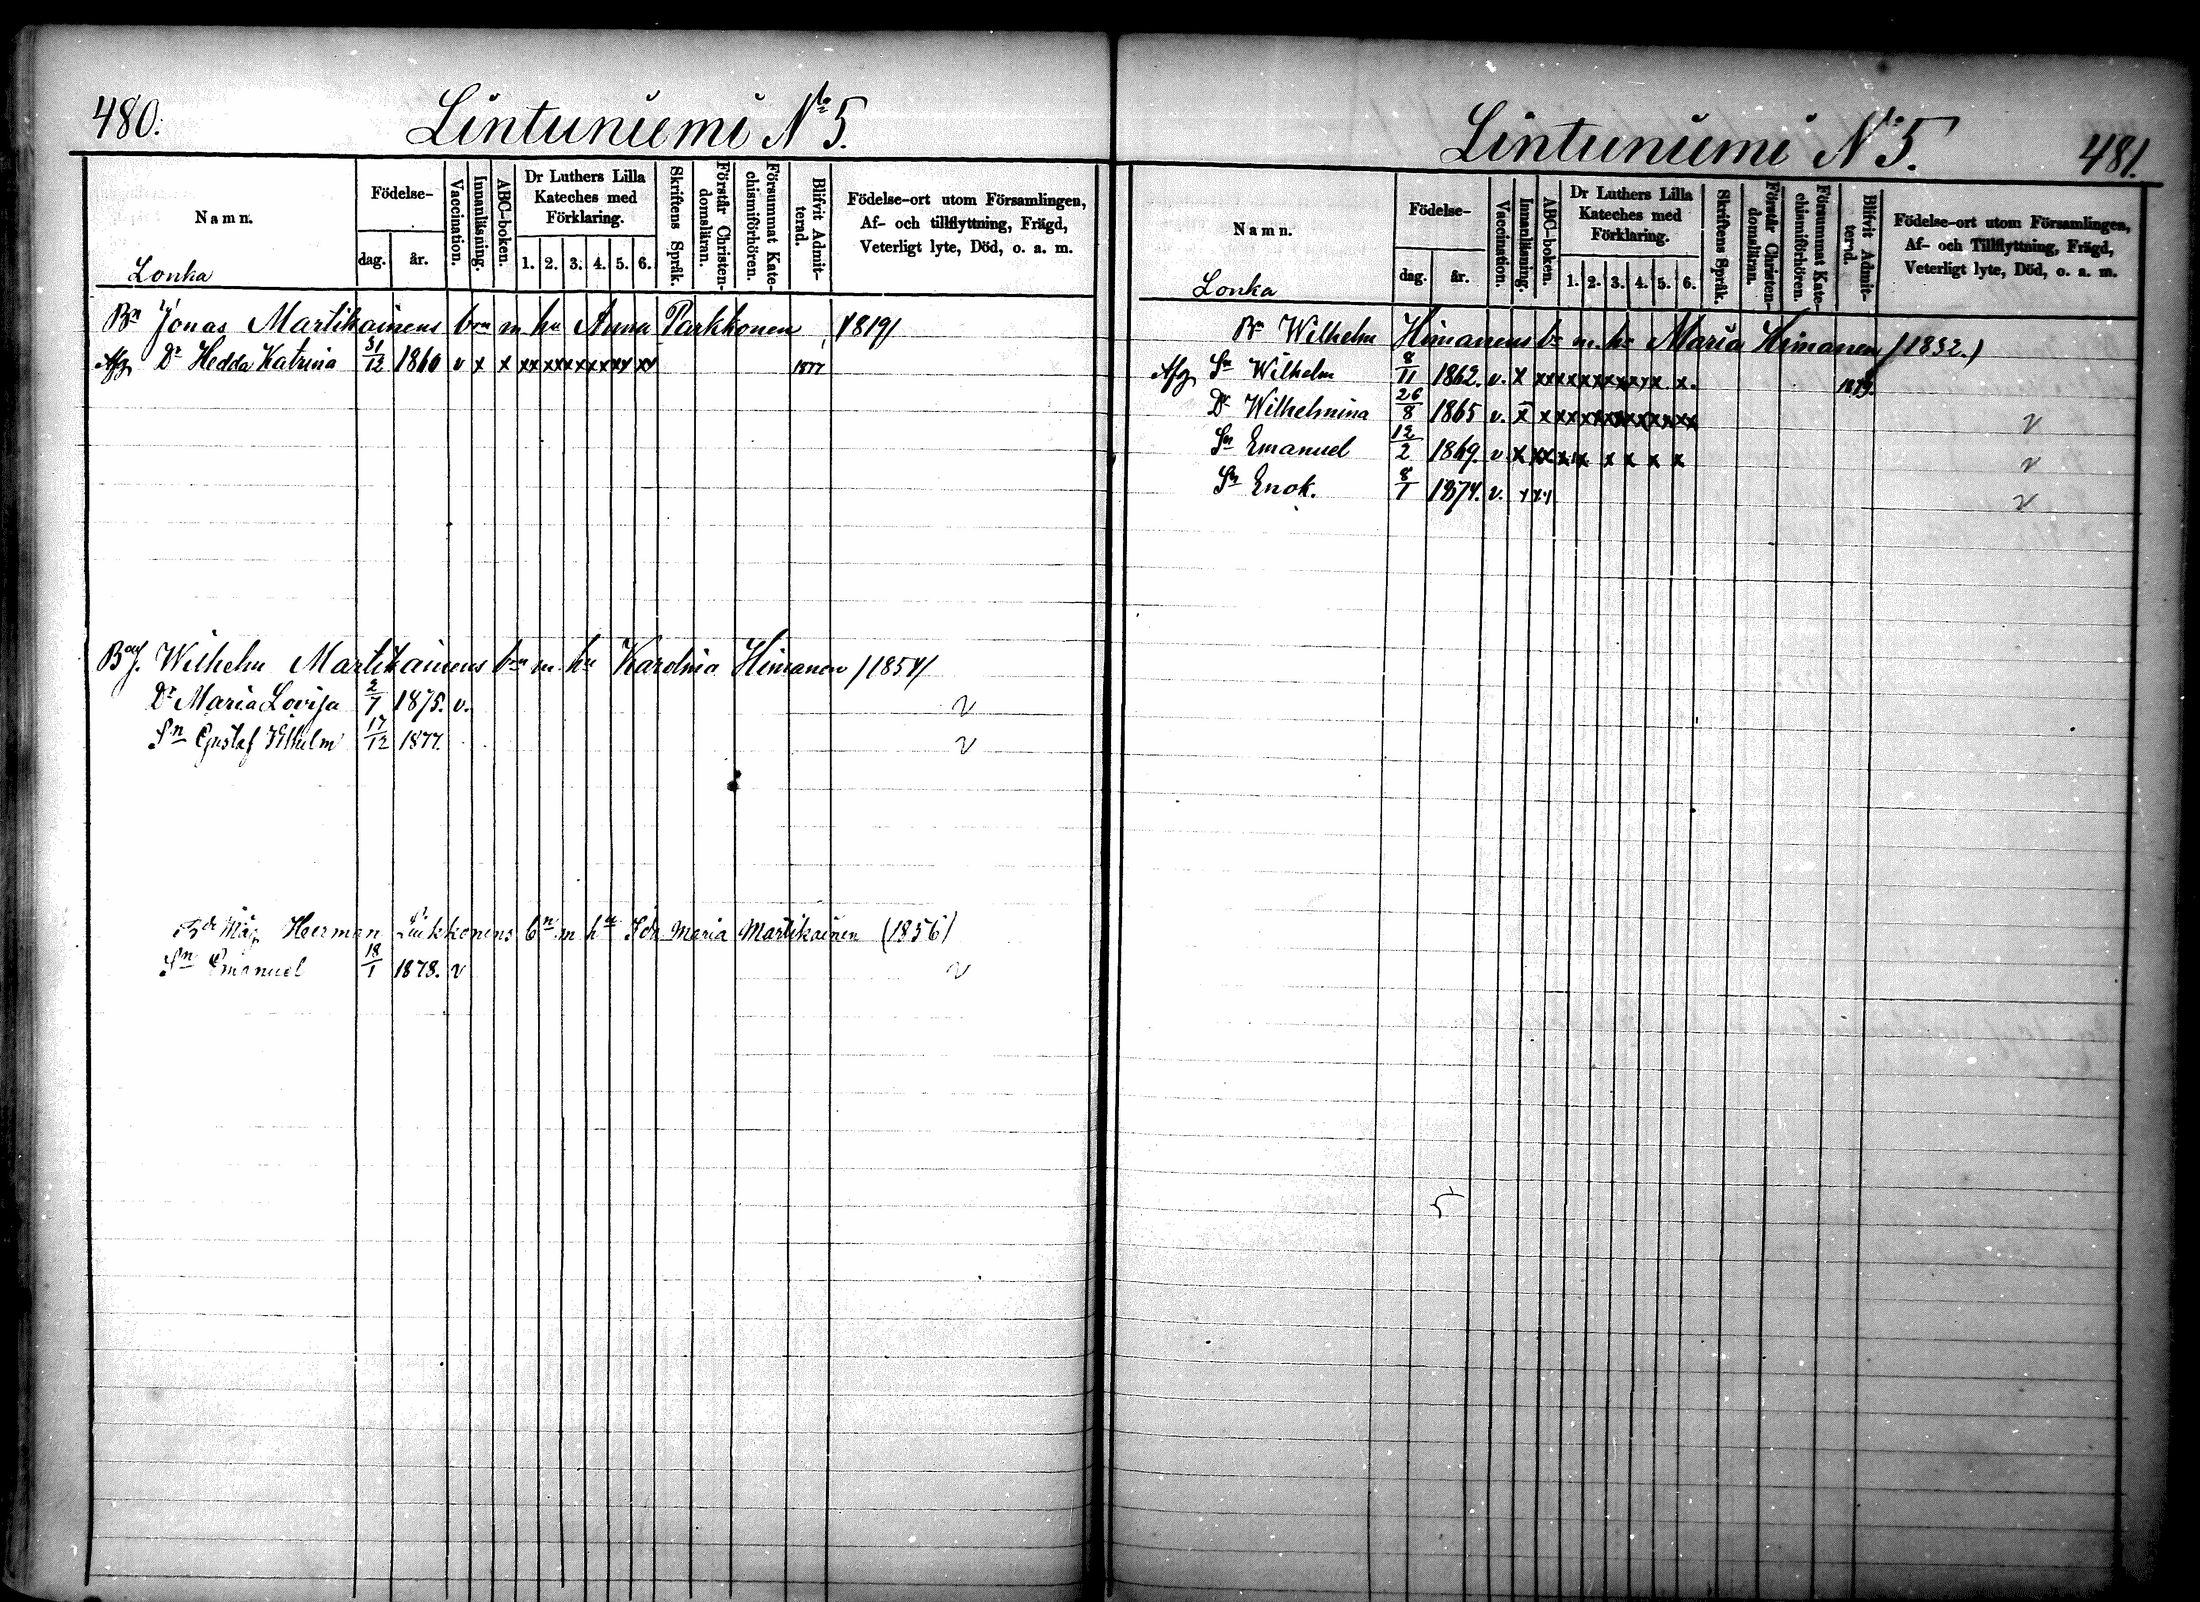 480.
Lintuniemi No 5.
Namn.
Födelse-
dag.
år.
Vaccination.
Innanläsning.
ABC-boken.
Dr Luthers Lilla
Kateches med
Förklaring.
1. 2. 3. 4. 5. 6.
Skriftens Språk.
Förstår Christen-
domsläran.
Försummat Kate-
chismiförhören.
Blifvit Admit-
terad.
Födelse-ort utom Församlingen,
Af- och tillflyttning, Frägd,
Veterligt lyte, Död, o. a. m.
Lonka
Bn Jonas Martikainens brn m hu Anna Parkkonen /1819/
Afg Dr Hedda Katrina 31/12 1860 v x x xx xx xx xx xx xx 1877
Wilhelm Martikainens brn m hu Karolina Himanen /1854/
Dr Maria Lovisa 2/7 1875. v. v
Sn Gustaf Vilhelm 17/12 1877. v
Herman bn m hu Ida Maria Martikainen (1856)
Sn Emanuel 18/1 1878. v v
Lintuniemi No 5.
481.
Namn.
Födelse-
dag.
år.
Vaccination.
Innanläsning.
ABC-boken.
Dr Luthers Lilla
Kateches med
Förklaring.
1. 2. 3. 4. 5. 6.
Skriftens Språk.
Förstår Christen-
domsläran.
Försummat Kate-
chismiförhören.
Blifvit Admit-
terad.
Födelse-ort utom Församlingen,
Af- och Tillflyttning, Frägd,
Veterligt lyte, Död, o. a. m.
Lonka
Bn Wilhelm Himanens bn m. hu Maria Himanen /1832.)
Afg Sn Wilhelm 8/11 1862. v. x xx xx xx xx xx x. x. 1879.
Dr Wilhelmina 26/8 1865 v. x xx xx xx xx xx xx xx v
Sn Emanuel 12/2 1869. v x xx x x x x x x v
Sn Enok. 8/1 1874. v. x x x v